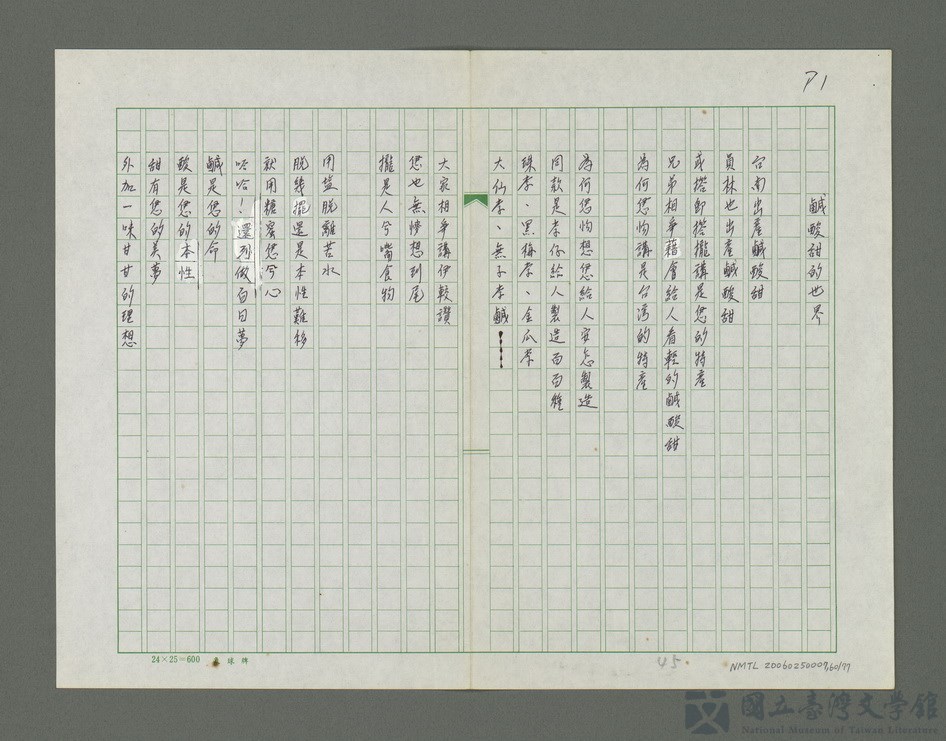 P1
鹹酸甜的世界
台南出產鹹酸甜
員林也出產鹹酸甜
或搭即搭攏講是您的特產
兄弟相爭藉會給人看輕的鹹酸甜
為何您怐講是台湾的特產
為何您怐想您給人安怎製造
同款是李仔給人製造百百種
珠李、黑梅李、金瓜李
大仙李、無子李鹹
大家相爭講伊較讚
您也無慘想到尾
攏是人兮嘴食物
用盐脫離苦水
脫幾擺還是本性難移
就用糖蜜您兮心
哈！還列做白日夢
鹹是您的命
酸是您的本性
甜有您的美夢
外加一味甘甘的理想
24×25=600
球牌
45
NMTL 20060250007
國立臺灣文學館
National Museum of Taiwan Literature